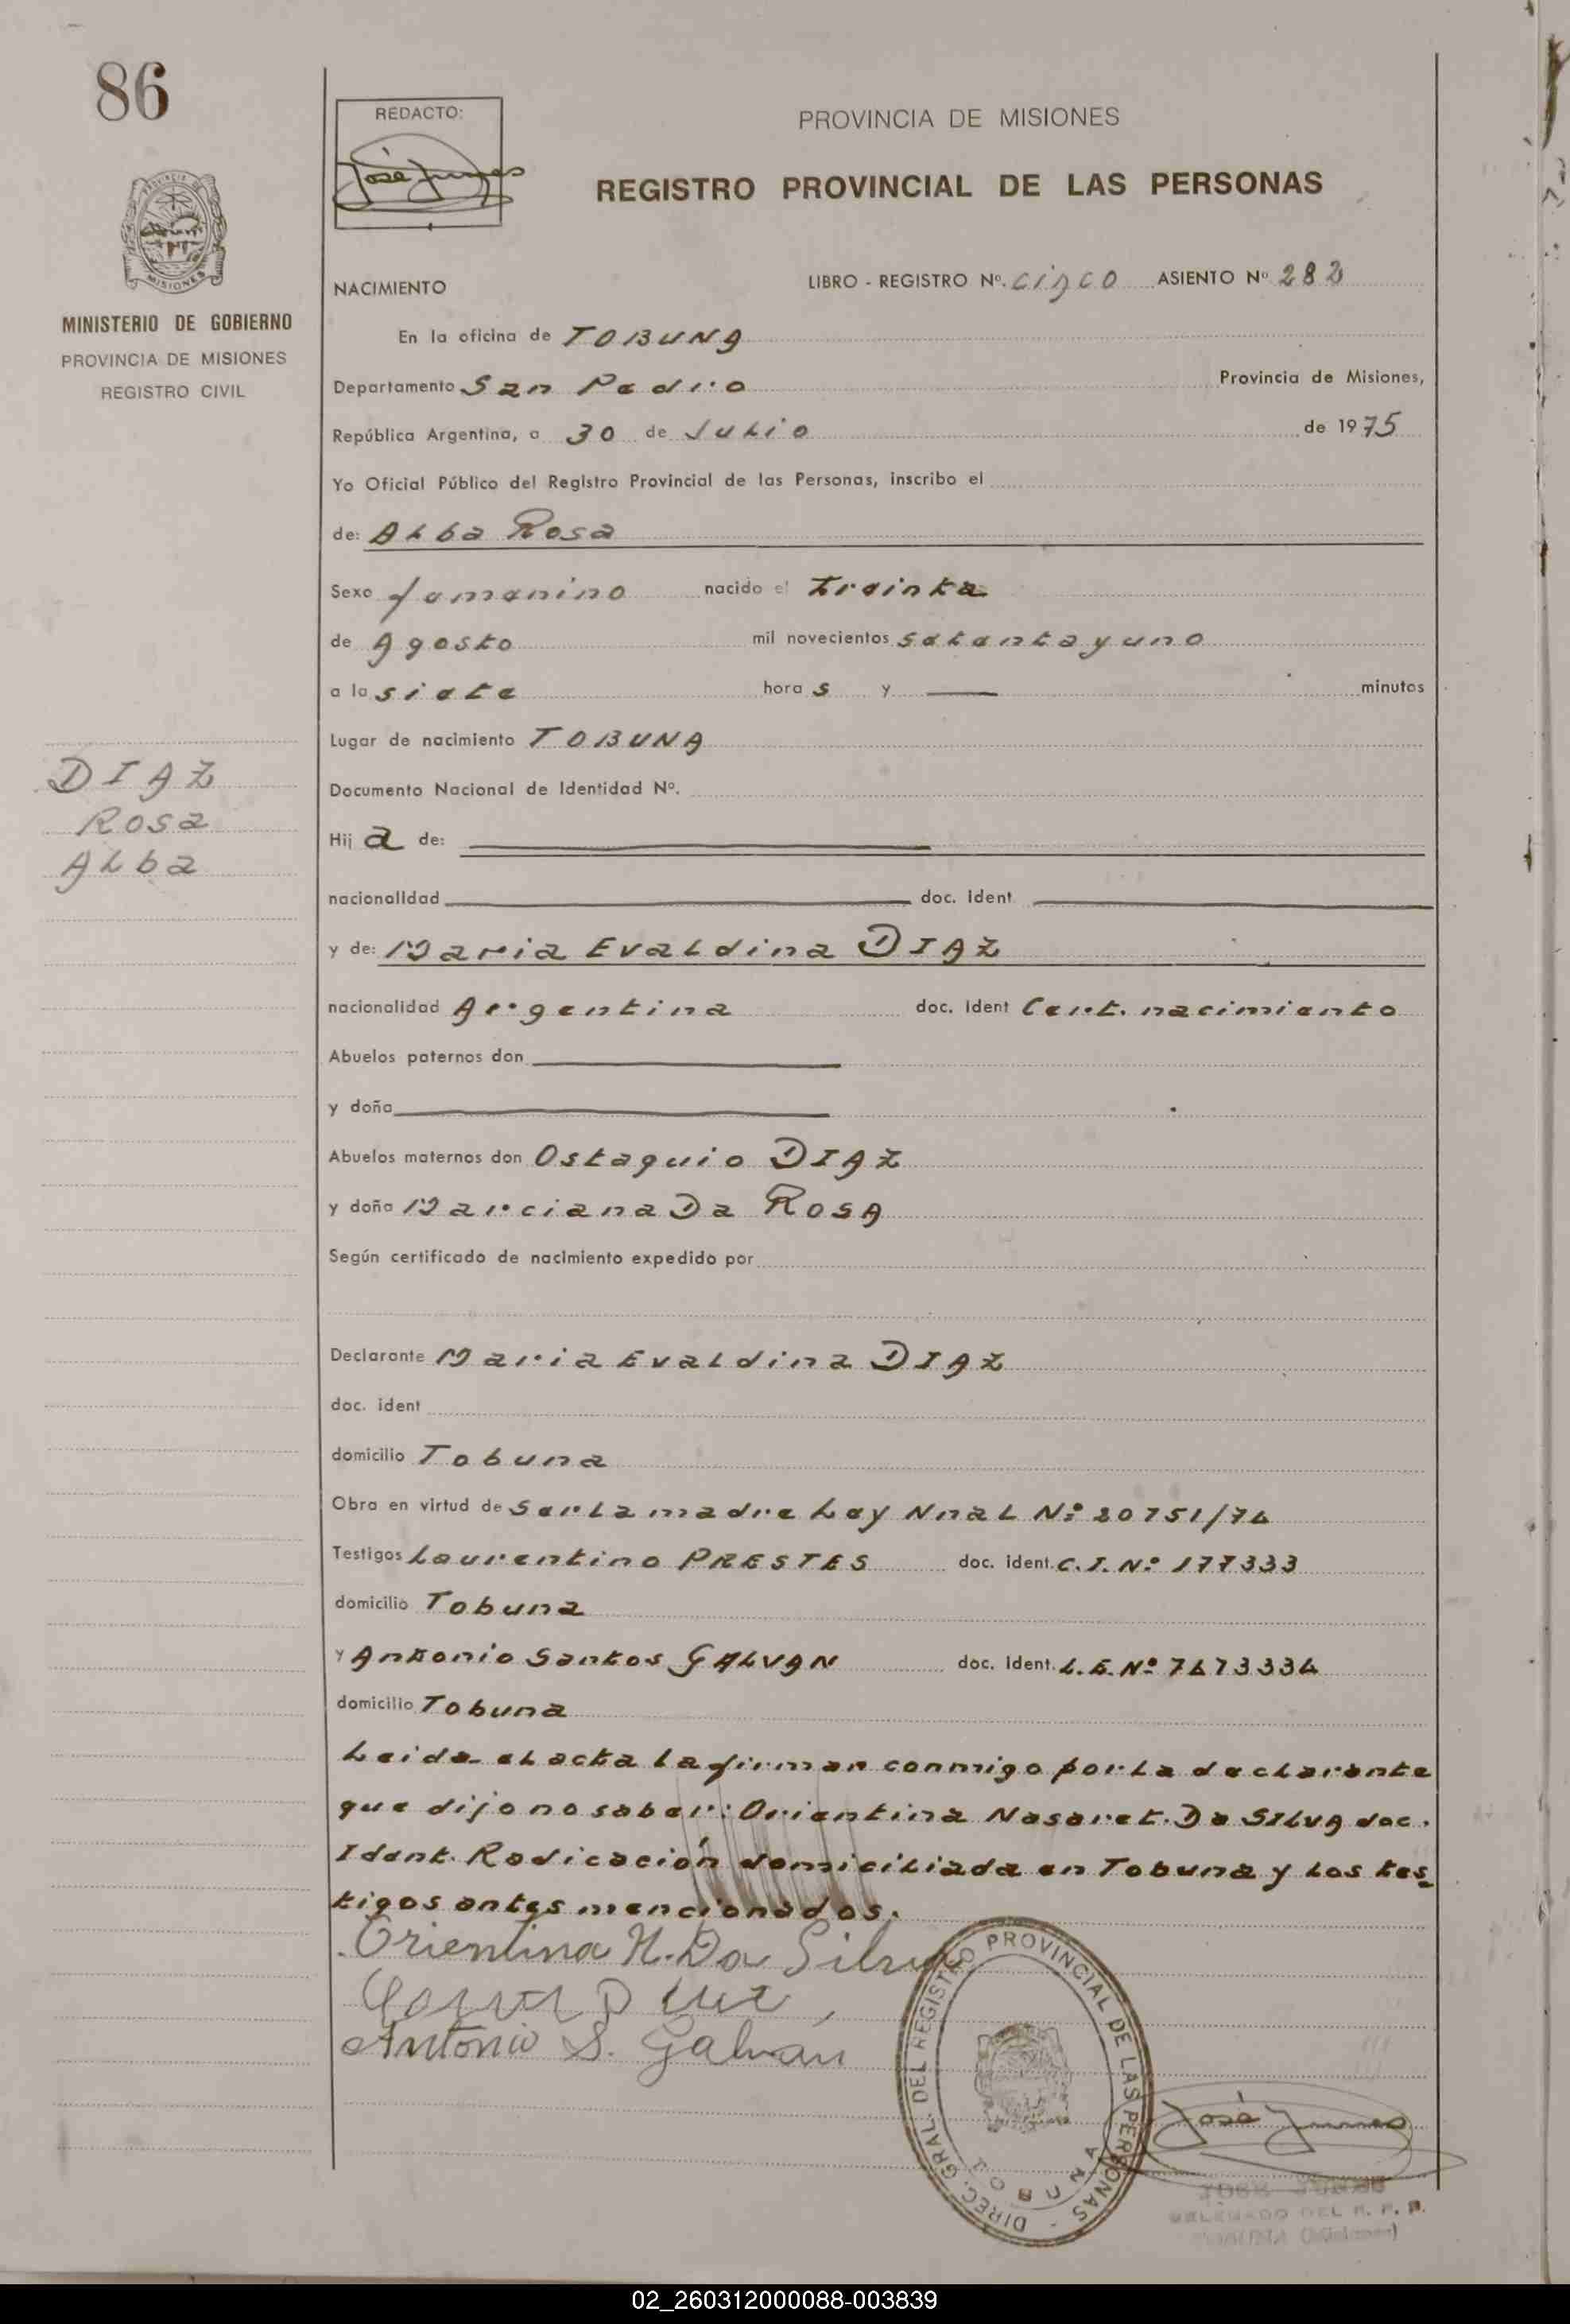 86
REDACTO:
José Junes
PROVINCIA DE MISIONES
REGISTRO PROVINCIAL DE LAS PERSONAS
PROVINCIA DE
MISIONES
MINISTERIO DE GOBIERNO
PROVINCIA DE MISIONES
REGISTRO CIVIL
NACIMIENTO
LIBRO - REGISTRO Nº. cinco ASIENTO Nº 282
En la oficina de TOBUNA
Departamento San Pedro Provincia de Misiones,
República Argentina, a 30 de Julio de 1975
Yo Oficial Público del Registro Provincial de las Personas, inscribo el
de: Alba Rosa
Sexo femenino nacido el treinta
de Agosto mil novecientos setenta y uno
a la siete hora s y — minutos
Lugar de nacimiento TOBUNA
DIAZ
Rosa
Alba
Documento Nacional de Identidad Nº.
Hij a de:
nacionalidad doc. ident
y de: Maria Evaldina DIAZ
nacionalidad Argentina doc. ident Cert. nacimiento
Abuelos paternos don
y doña
Abuelos maternos don Ostaquio DIAZ
y doña Marciana Da ROSA
Según certificado de nacimiento expedido por
Declarante Maria Evaldina DIAZ
doc. ident
domicilio Tobuna
Obra en virtud de ser la madre Ley Nnal Nº 20751/74
Testigos Laurentino PRESTES doc. ident. C.I. Nº 177333
domicilio Tobuna
y Antonio Santos GALVAN doc. ident. L.E. Nº 7473334
domicilio Tobuna
Leida el acta la firman conmigo por la declarante
que dijo no saber: Orientina Nasaret. Da SILVA doc.
Ident. Radicación domiciliada en Tobuna y los tes
tigos antes mencionados.
Orientina N. Da Silva
Antonio S. Galván
DIREC. GRAL. DEL REGISTRO PROVINCIAL DE LAS PERSONAS -
TOBUNA
José Junes
JOSE JUNES
DELEGADO DEL R. P. P.
TOBUNA (Misiones)
02_260312000088-003839